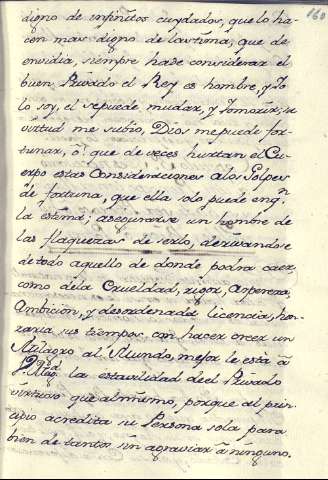 160
digno de infinitos cuydados, que lo ha-
cen mas digno de lastima, que de
envidia, siempre hade considerar el
buen Privado el Rey es hombre, y Yo
lo soy, el sepuede mudar, y Yo morir, su
virtud me subio, Dios mepuede for-
tunar, ô que de veces hurtan el Cu-
erpo estas Consideraciones alos Golpes
de fortuna, que ella solo puede eng.n
la estima; asegurarse un hombre de
las flaquezas de serlo, desviandose
de todo aquello de donde podra caer,
como dela Crueldad, rigor, aspereza,
Ambicion, y desordenada licencia, hon-
raria sus tiempos con hacer creer un
Milagro al Mundo, mejor le está â
la estavilidad deel Privado
virtuoso que almismo, porque al prin-
cipio acredita su Persona sola para
bien de tantos sin agraviar â ninguno.